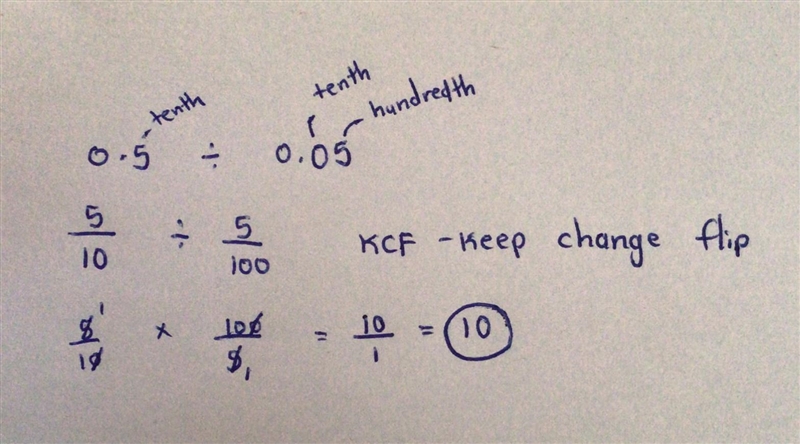 tenth
tenth
hundredth
0.5 ÷ 0.05
5/10 ÷ 5/100 KCF - Keep change flip
5 1/10 × 100/5 1 = 10/1 = 10